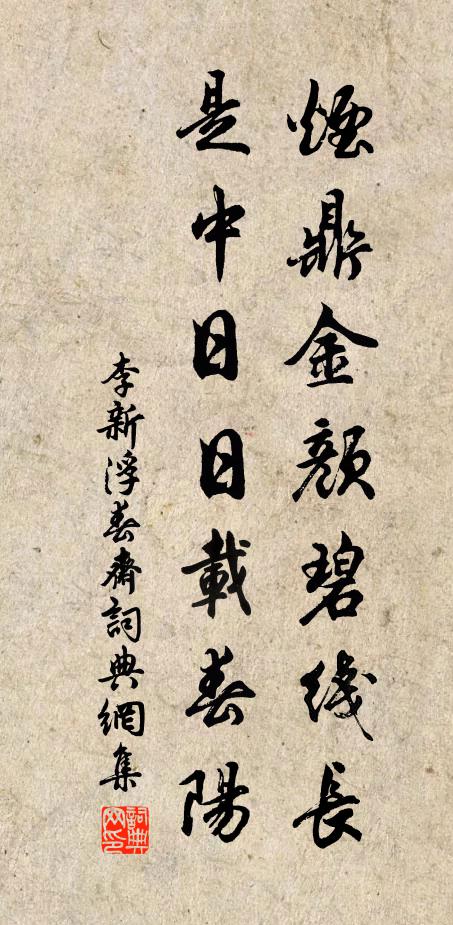 煙鼎金顏碧线長
是中日日載春陽
李新浮春齋詞典網集
詞典網印